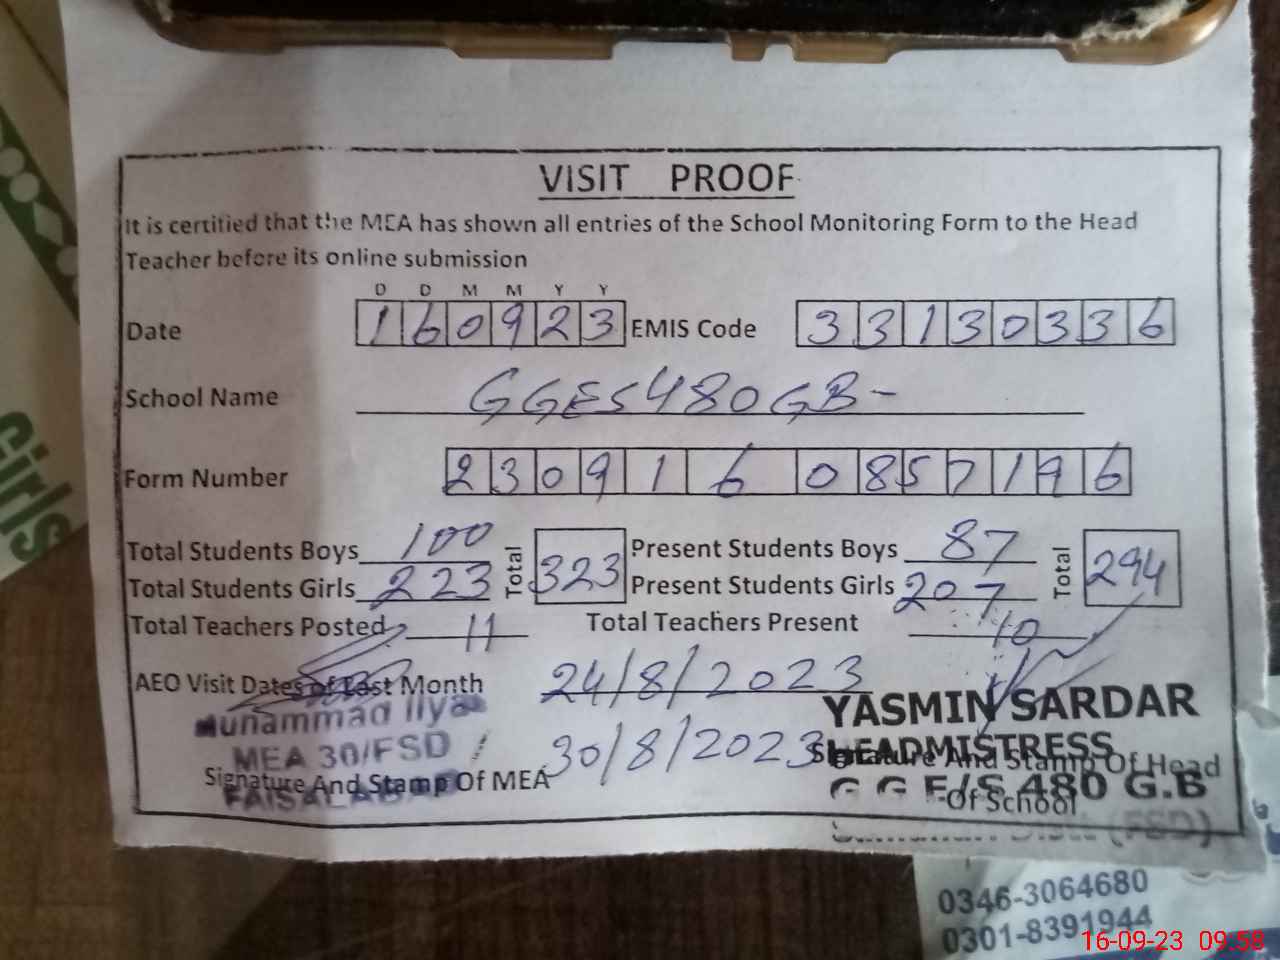 VISIT PROOF
It is certified that the MEA has shown all entries of the School Monitoring Form to the Head
Teacher before its online submission
D D M M Y Y
Date 1 6 0 9 2 3 EMIS Code 3 3 1 3 0 3 3 6
School Name GGES 480 GB-
Form Number 2 3 0 9 1 6 0 8 5 7 1 9 6
Total Students Boys 100 Total 323 Present Students Boys 87 Total 294
Total Students Girls 223 Present Students Girls 207
Total Teachers Posted 11 Total Teachers Present 10
AEO Visit Dates of Last Month 24/8/2023
30/8/2023
Muhammad Ilyas
MEA 30/FSD
FAISALABAD
Signature And Stamp Of MEA
YASMIN SARDAR
HEADMISTRESS
G G E/S 480 G.B
(FSD)
Signature And Stamp Of Head
Of School
Girls
0346-3064680
0301-8391944
16-09-23 09:58